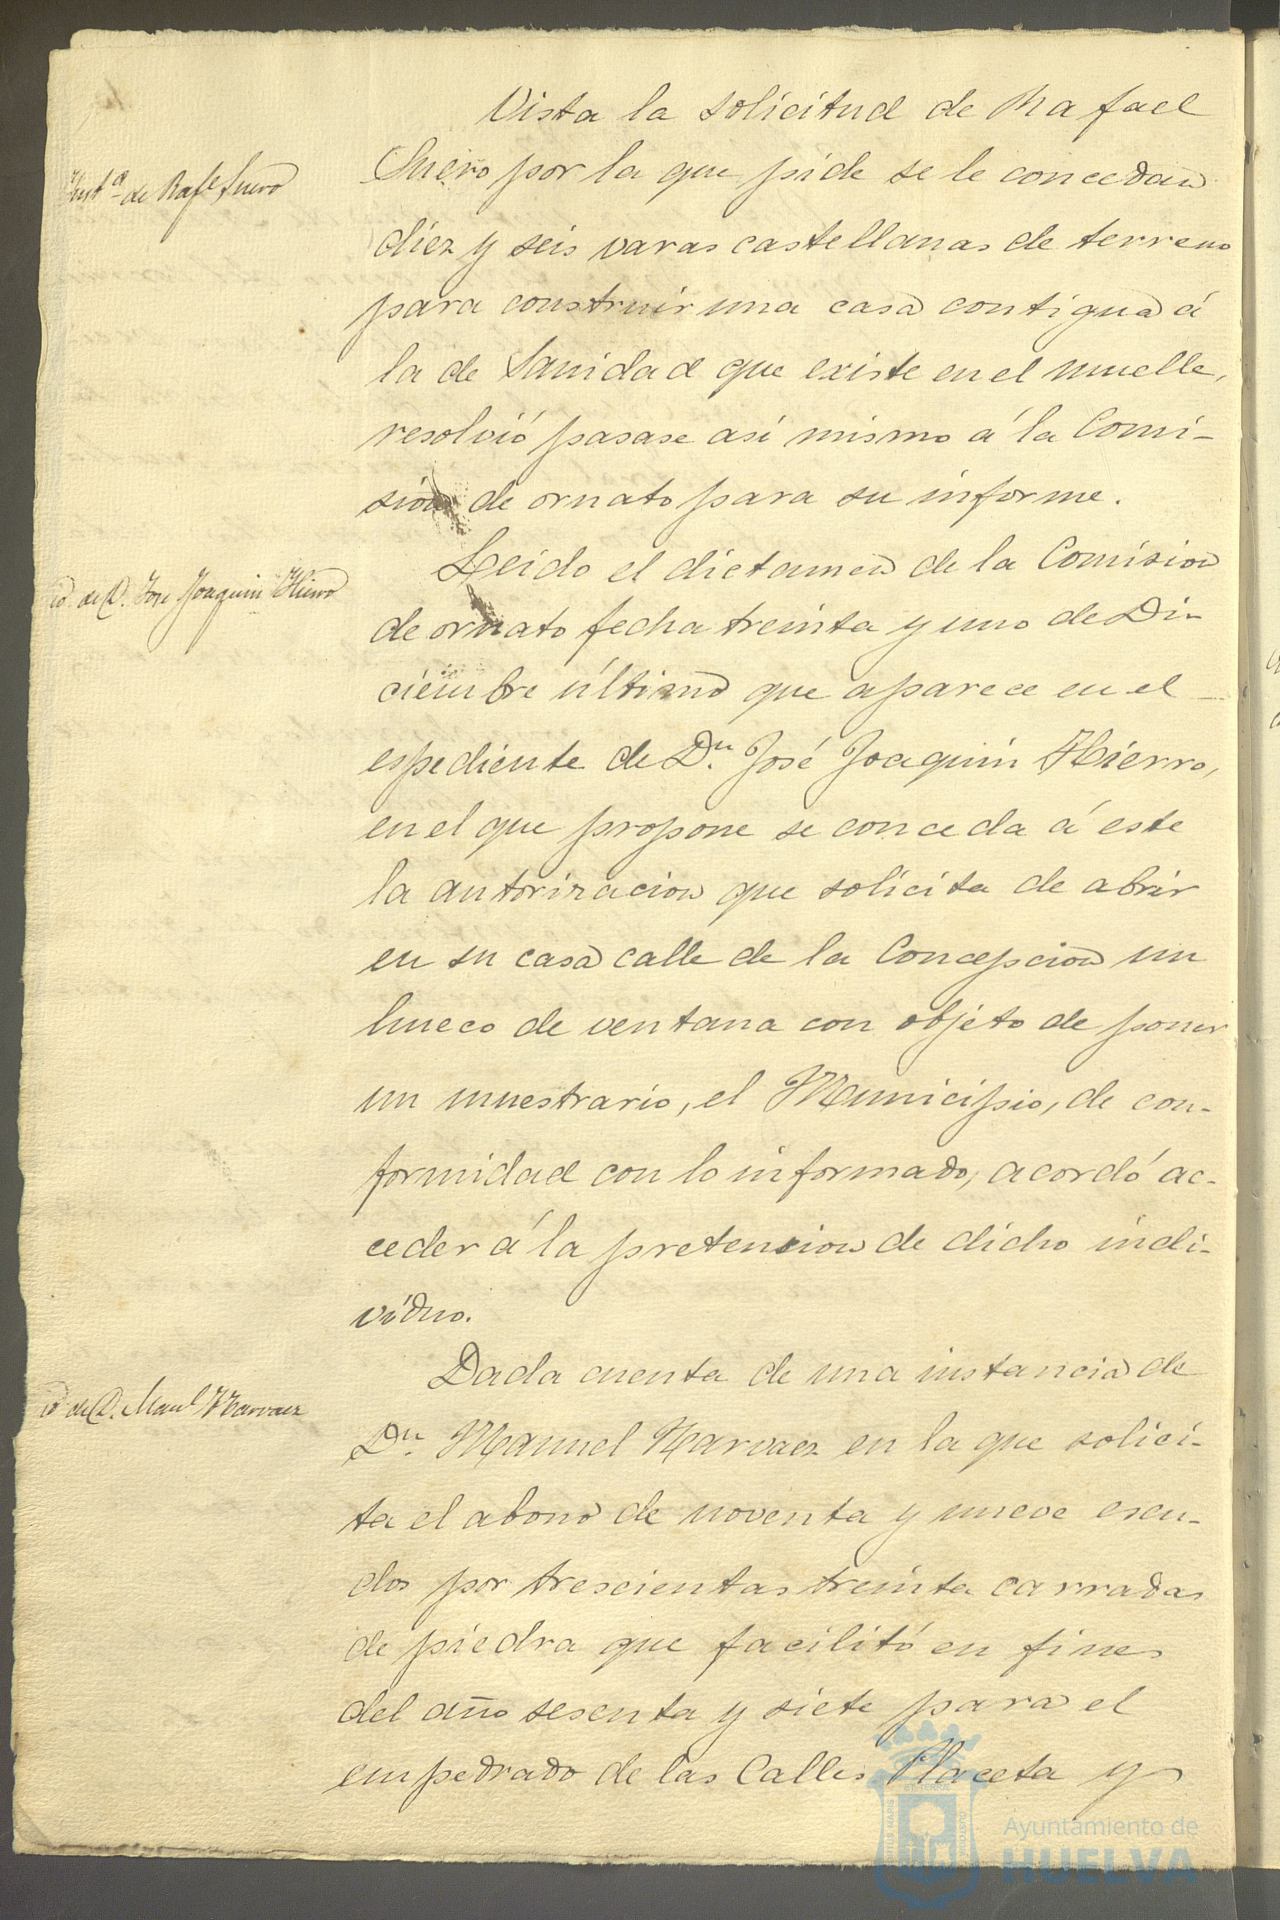 Vista la solicitud de Rafael
Inst.ª de Raf.l Suero
Suero por la que pide se le concedan
diez y seis varas castellanas de terreno
para construir una casa contigua á
la de Sanidad que existe en el muelle,
resolvió pasase asi mismo á la Comi-
sion de ornato para su informe.
id. de D. Jose Joaquin Hierro
Leido el dictamen de la Comision
de ornato fecha treinta y uno de Di-
ciembre último que aparece en el
espediente de D.n José Joaquin Hierro,
en el que propone se conceda á este
la autorizacion que solicita de abrir
en su casa calle de la Concepcion un
hueco de ventana con objeto de poner
un muestrario, el Municipio, de con-
formidad con lo informado, acordó ac-
ceder á la pretension de dicho indi-
víduo.
id. de D. Man.l Narvaez
Dada cuenta de una instancia de
D.n Manuel Narvaez en la que solici-
ta el abono de noventa y nueve escu-
dos por trescientas treinta carradas
de piedra que facilitó en fines
del año sesenta y siete para el
empedrado de las Calles Placeta y
Ayuntamiento de
HUELVA